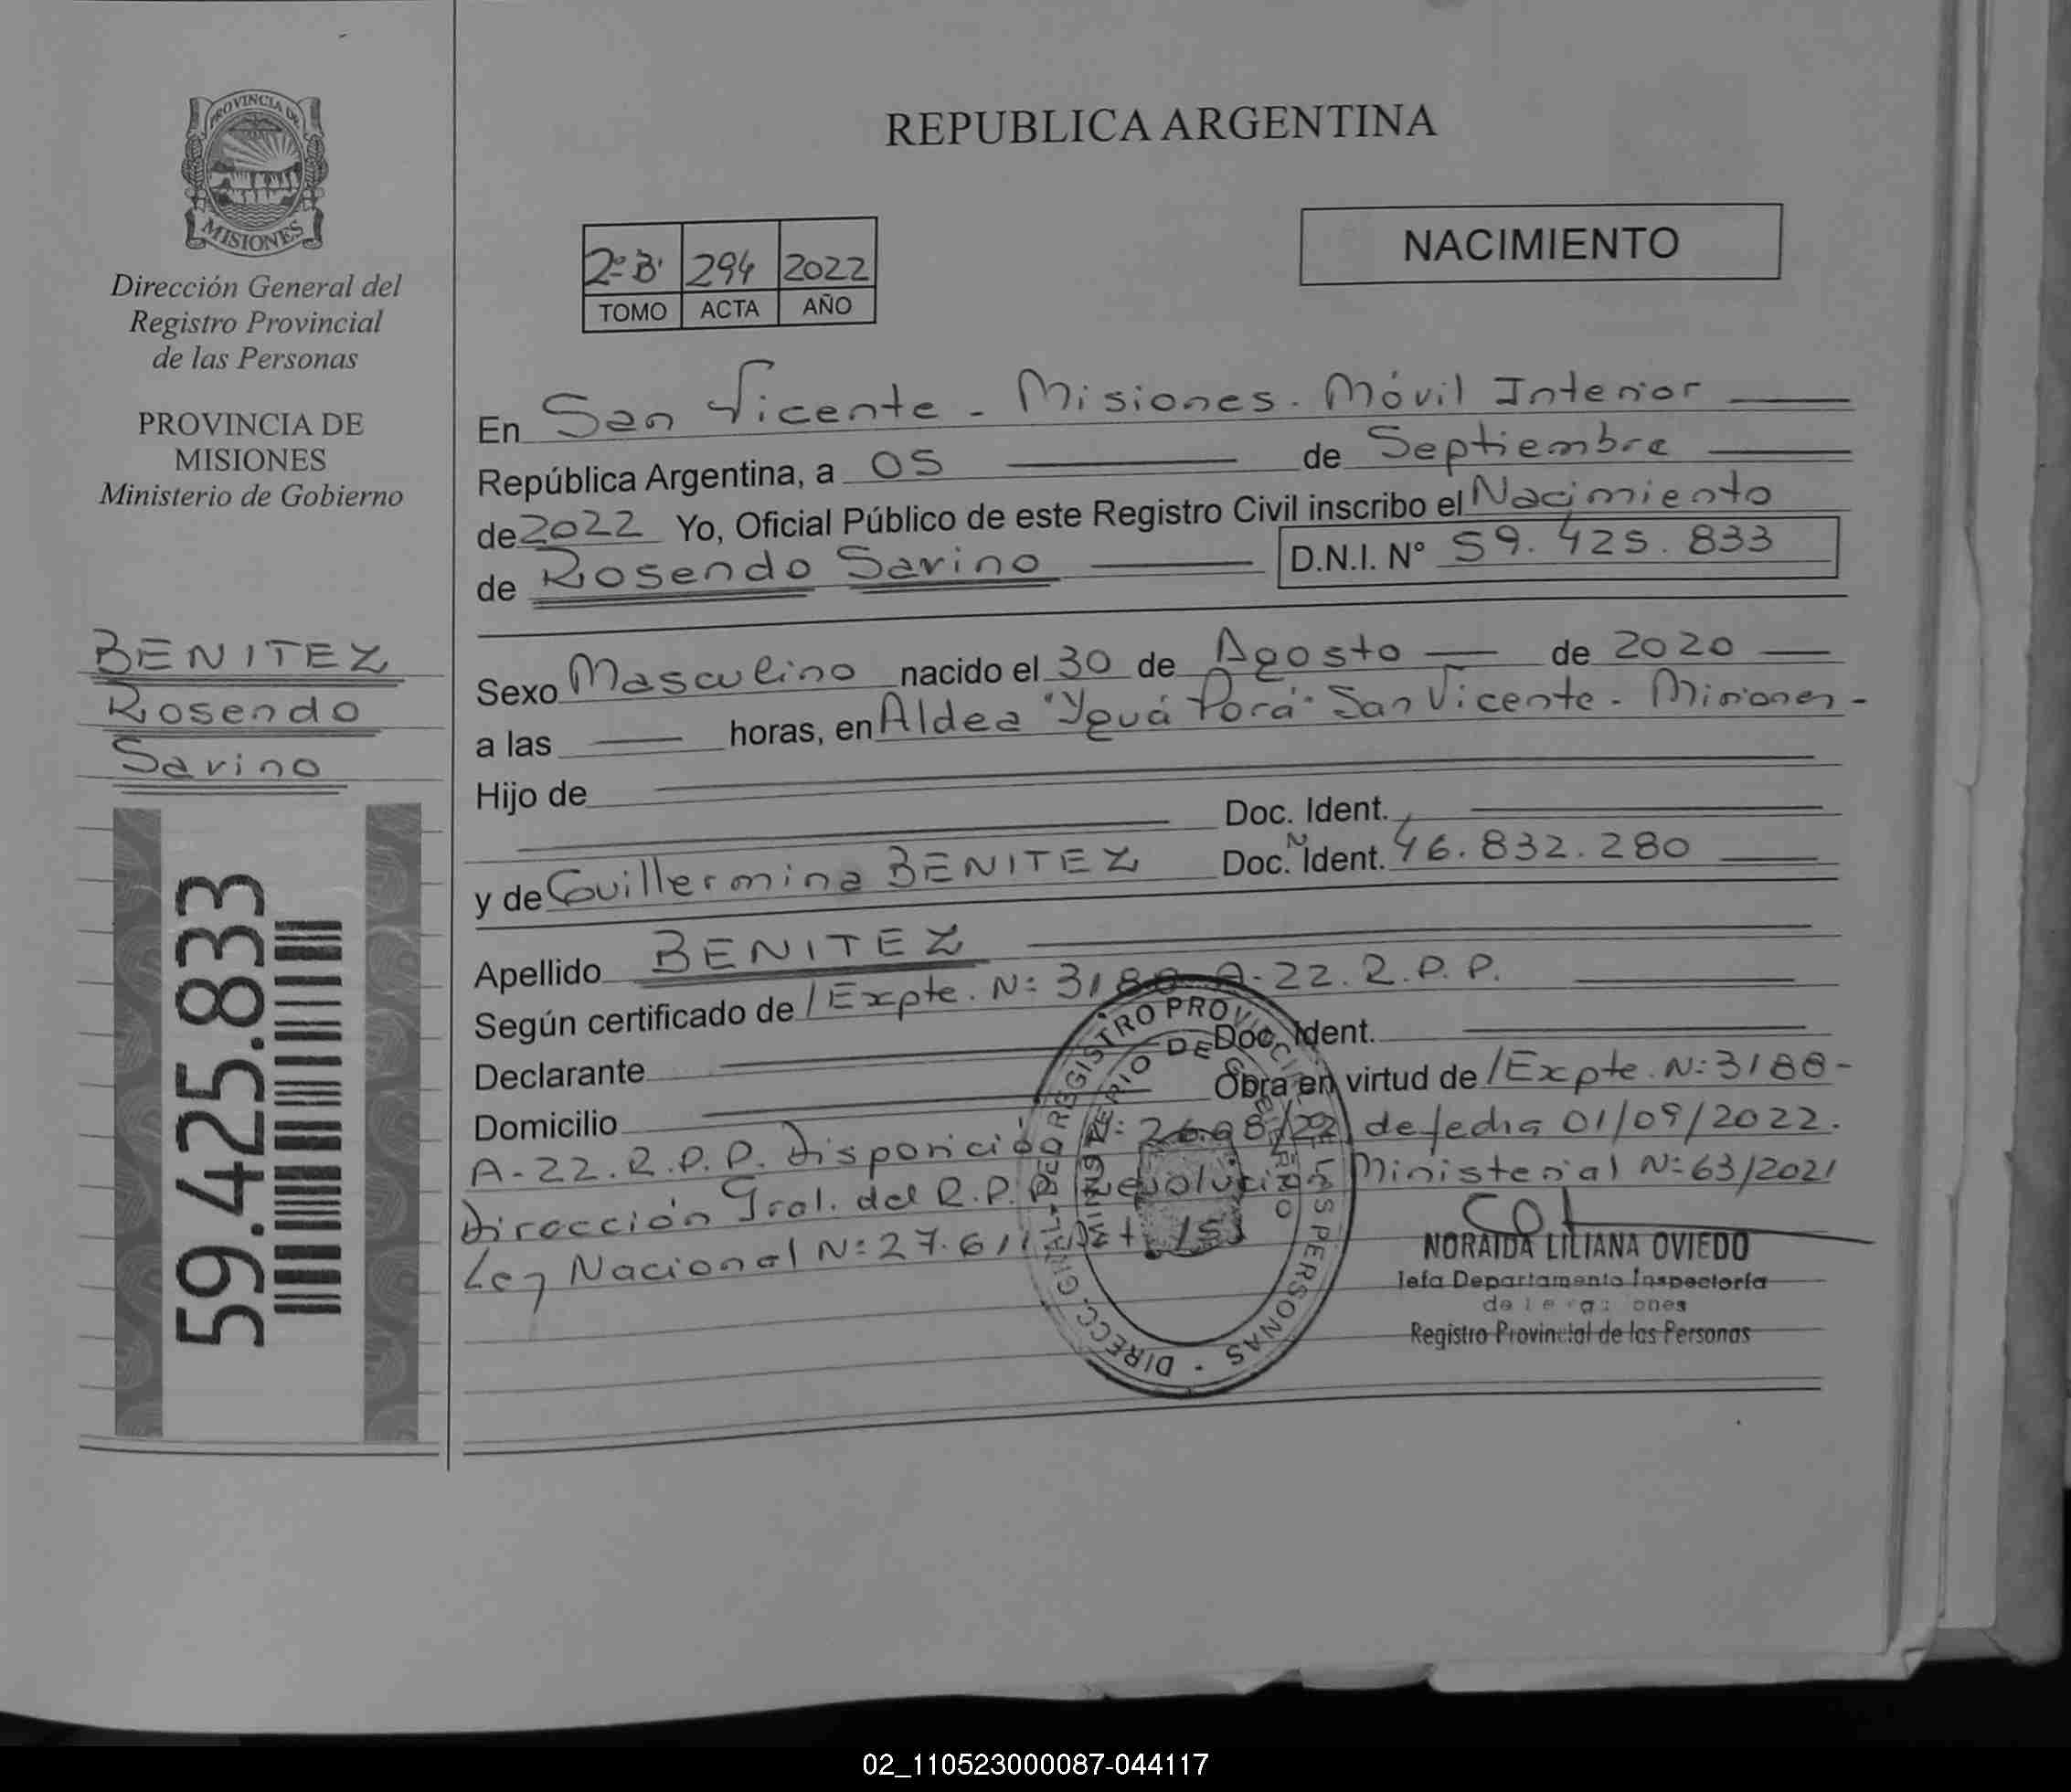 PROVINCIA DE
MISIONES
Dirección General del
Registro Provincial
de las Personas
PROVINCIA DE
MISIONES
Ministerio de Gobierno
BENITEZ
Rosendo
Savino
59.425.833
REPUBLICA ARGENTINA
2º B' 294 2022
TOMO ACTA AÑO
NACIMIENTO
En San Vicente - Misiones. Móvil Interior
República Argentina, a 05 de Septiembre
de 2022 Yo, Oficial Público de este Registro Civil inscribo el Nacimiento
de Rosendo Savino D.N.I. N° 59.425.833
Sexo Masculino nacido el 30 de Agosto de 2020
a las horas, en Aldea "Yguá Porá" San Vicente - Misiones -
Hijo de
Doc. Ident.
y de Guillermina BENITEZ Doc. N Ident. 46.832.280
Apellido BENITEZ
Según certificado de /Expte. N: 3188-A-22.R.P.P.
Declarante Doc. Ident.
Domicilio Obra en virtud de /Expte. N: 3188-
A-22.R.P.P. Disposición N: /22 de fecha 01/09/2022.
Dirección Gral. del R.P.P. Resolución Ministerial N: 63/2021
Ley Nacional N: 27.611 Art. 15
DIRECC. GRAL. DEL REGISTRO PROVINCIAL DE LAS PERSONAS -
MINISTERIO DE GOBIERNO
NORAIDA LILIANA OVIEDO
Jefa Departamento Inspectoría
Registro Provincial de las Personas
02_110523000087-044117